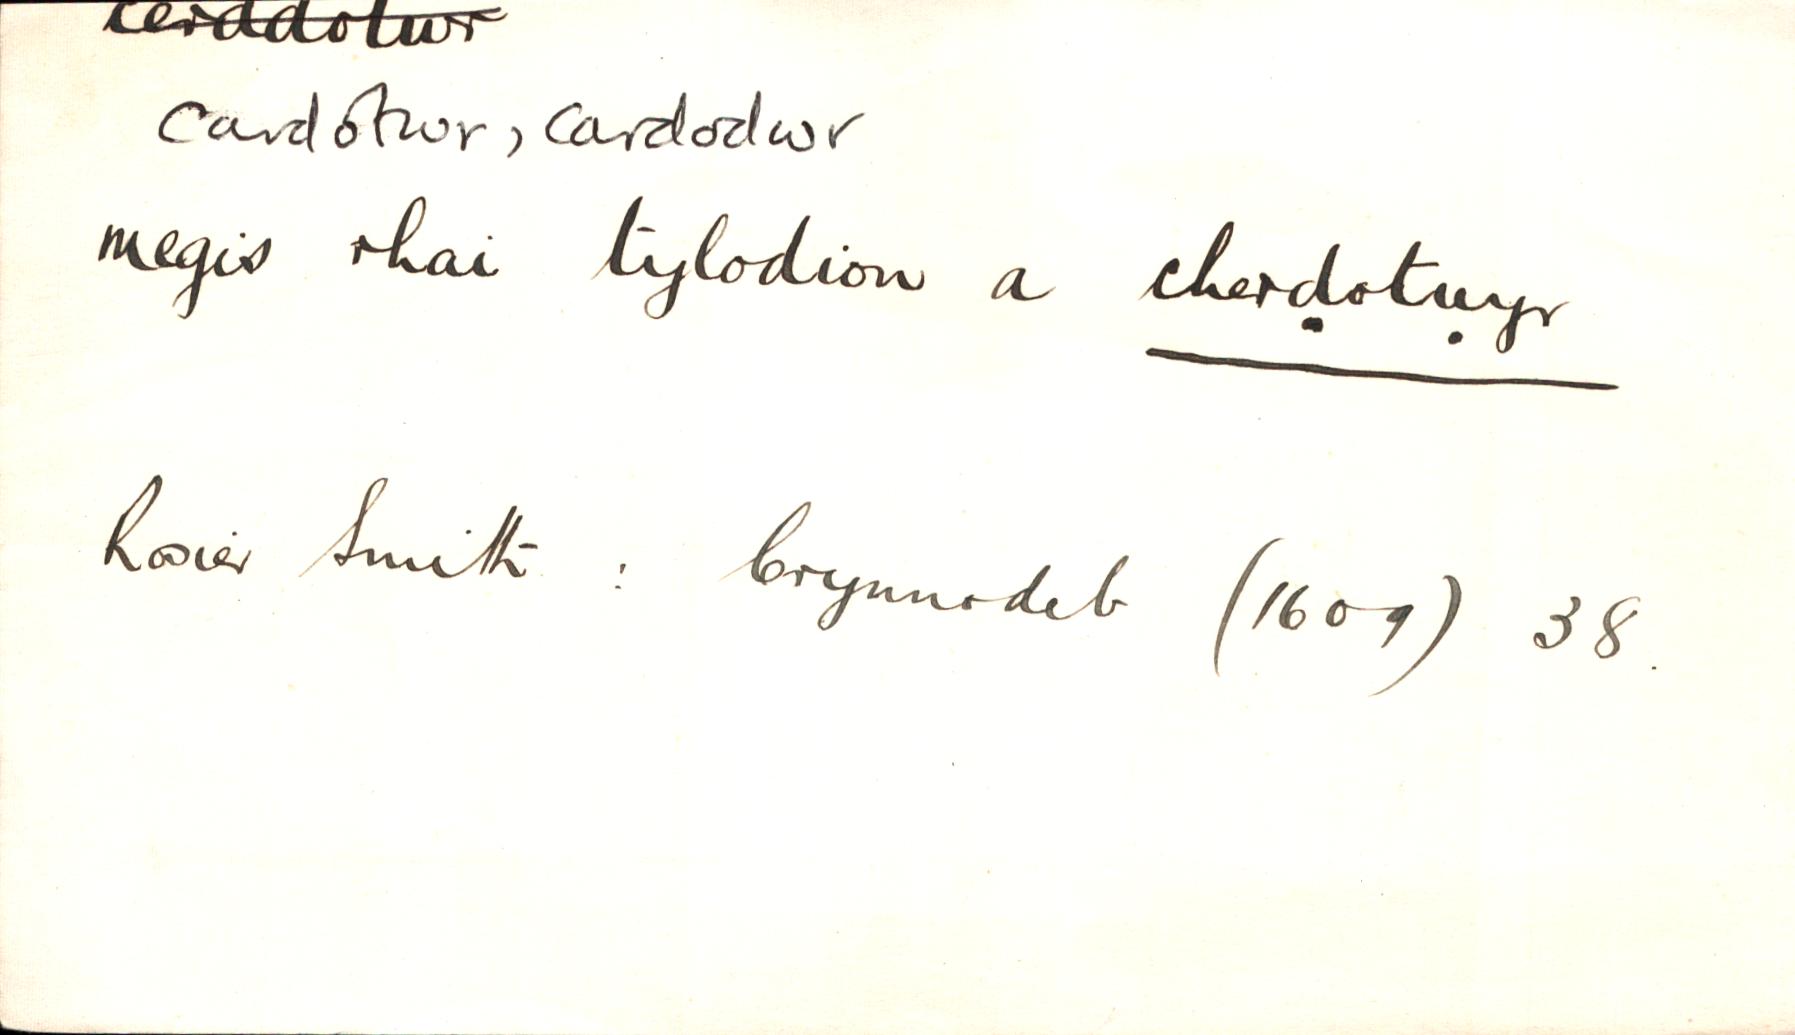 cerddotwr
cardotwr, cardodwr
megis rhai tylodion a cherḍotẉyr
Rosier Smith : Crynnodeb (1609) 38.